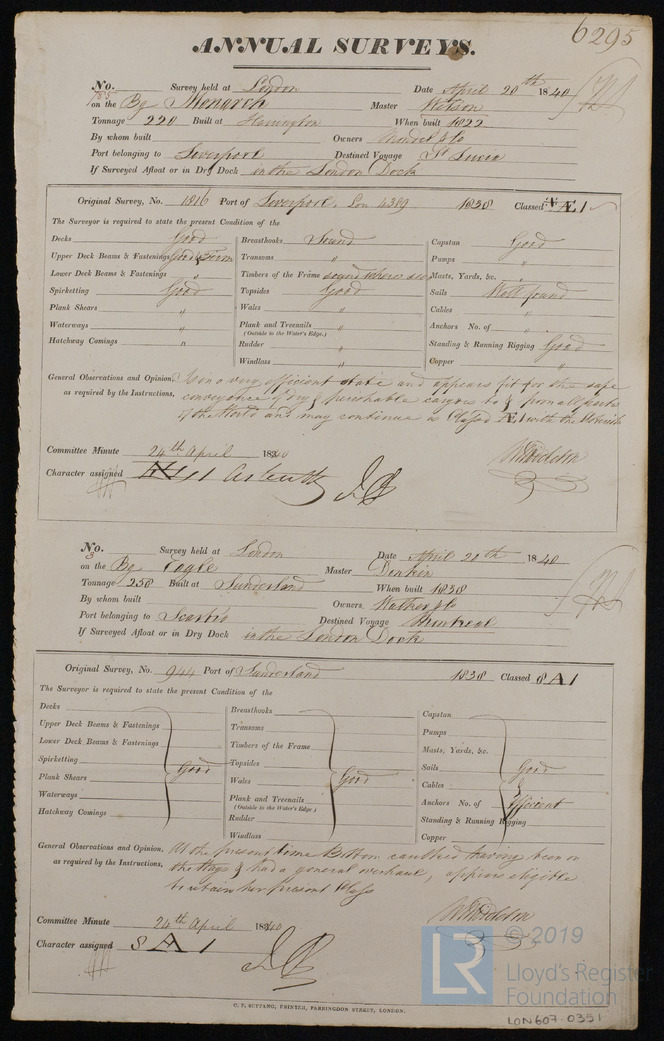 6295
ANNUAL SURVEYS.
No. Survey held at London Date April 20th 1840
on the Bg Monarch Master
Tonnage 220 Built at When built 1822
By whom built Owners
Port belonging to Liverpool Destined Voyage St Lucia
If Surveyed Afloat or in Dry Dock in the London Dock
Original Survey, No. 1816 Port of Liverpool, Lon 4389 1838 Classed Æ 1
The Surveyor is required to state the present Condition of the
Decks Good Breasthooks Sound Capstan Good
Upper Deck Beams & Fastenings Good & Firm Transoms " Pumps "
Lower Deck Beams & Fastenings " Timbers of the Frame sound where seen Masts, Yards, &c. "
Spirketting Good Topsides Good Sails Well found
Plank Shears " Wales " Cables "
Waterways " Plank and Treenails " Anchors No. of "
(Outside to the Water's Edge.)
Hatchway Comings " Rudder " Standing & Running Rigging Good
Windlass " Copper "
General Observations and Opinion, Is in a very efficient state and appears fit for the safe
as required by the Instructions, conveyance of dry & perishable cargoes to & from all parts
of the World and may continue as Classed Æ 1 with the
Committee Minute 24th April 1840
Character assigned
No. Survey held at London Date April 20th 1840
3
on the Bg Eagle Master
Tonnage 258 Built at Sunderland When built 1838
By whom built Owners
Port belonging to Scarbro Destined Voyage Montreal
If Surveyed Afloat or in Dry Dock in the London Dock
Original Survey, No. 944 Port of Sunderland 1838 Classed 8 A 1
The Surveyor is required to state the present Condition of the
Decks Breasthooks Capstan
Upper Deck Beams & Fastenings Transoms Pumps
Lower Deck Beams & Fastenings Timbers of the Frame Masts, Yards, &c.
Spirketting Good Topsides Sails Good
Plank Shears Wales Good Cables
Waterways Plank and Treenails Anchors No. of Efficient
(Outside to the Water's Edge.)
Hatchway Comings Rudder Standing & Running Rigging
Windlass Copper
General Observations and Opinion, At the present time Bottom caulked having been on
as required by the Instructions, the Ways & had a general overhaul, appears eligible
to retain her present Class
Committee Minute 24th April 1840
Character assigned 8 A 1
C. F. SEYFANG, PRINTER, FARRINGDON STREET, LONDON.
LR © 2019
Lloyd's Register
Foundation
LON607-0351